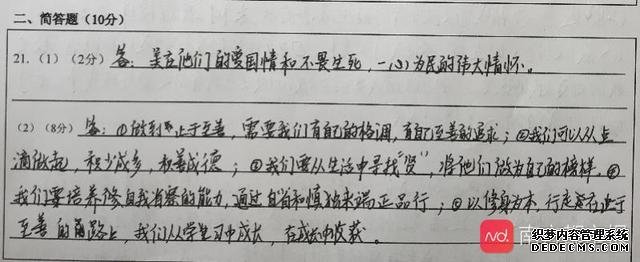 二、简答题（10分）
21.（1）（2分）答：美在他们的爱国情和不畏生死，一心为民的伟大情怀。
（2）（8分）答：①做到"止于至善，需要我们有自己的格调，有自己至善的追求；②我们可以从点
滴做起，积少成多，积善成德；③我们要从生活中寻找"贤"，将他们做为自己的榜样。④
我们要培养修自我省察的能力，通过自省和慎独来端正品行；⑤以修身为本，行走在止于
至善的道路上，我们从学习中成长，在成长中收获。
南
织梦内容管理系统
DEDECMS.COM